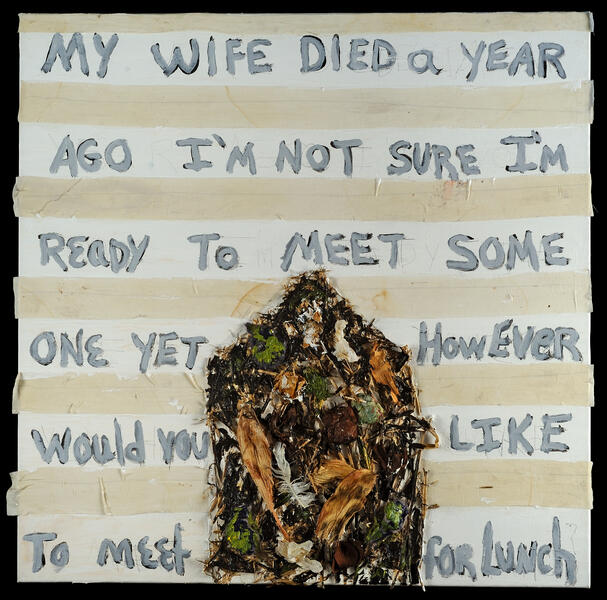 MY WIFE DIED a YEAR
AGO I'M NOT SURE I'M
READY To MEET SOME
ONE YET HowEver
Would You LIKE
To meet for Lunch